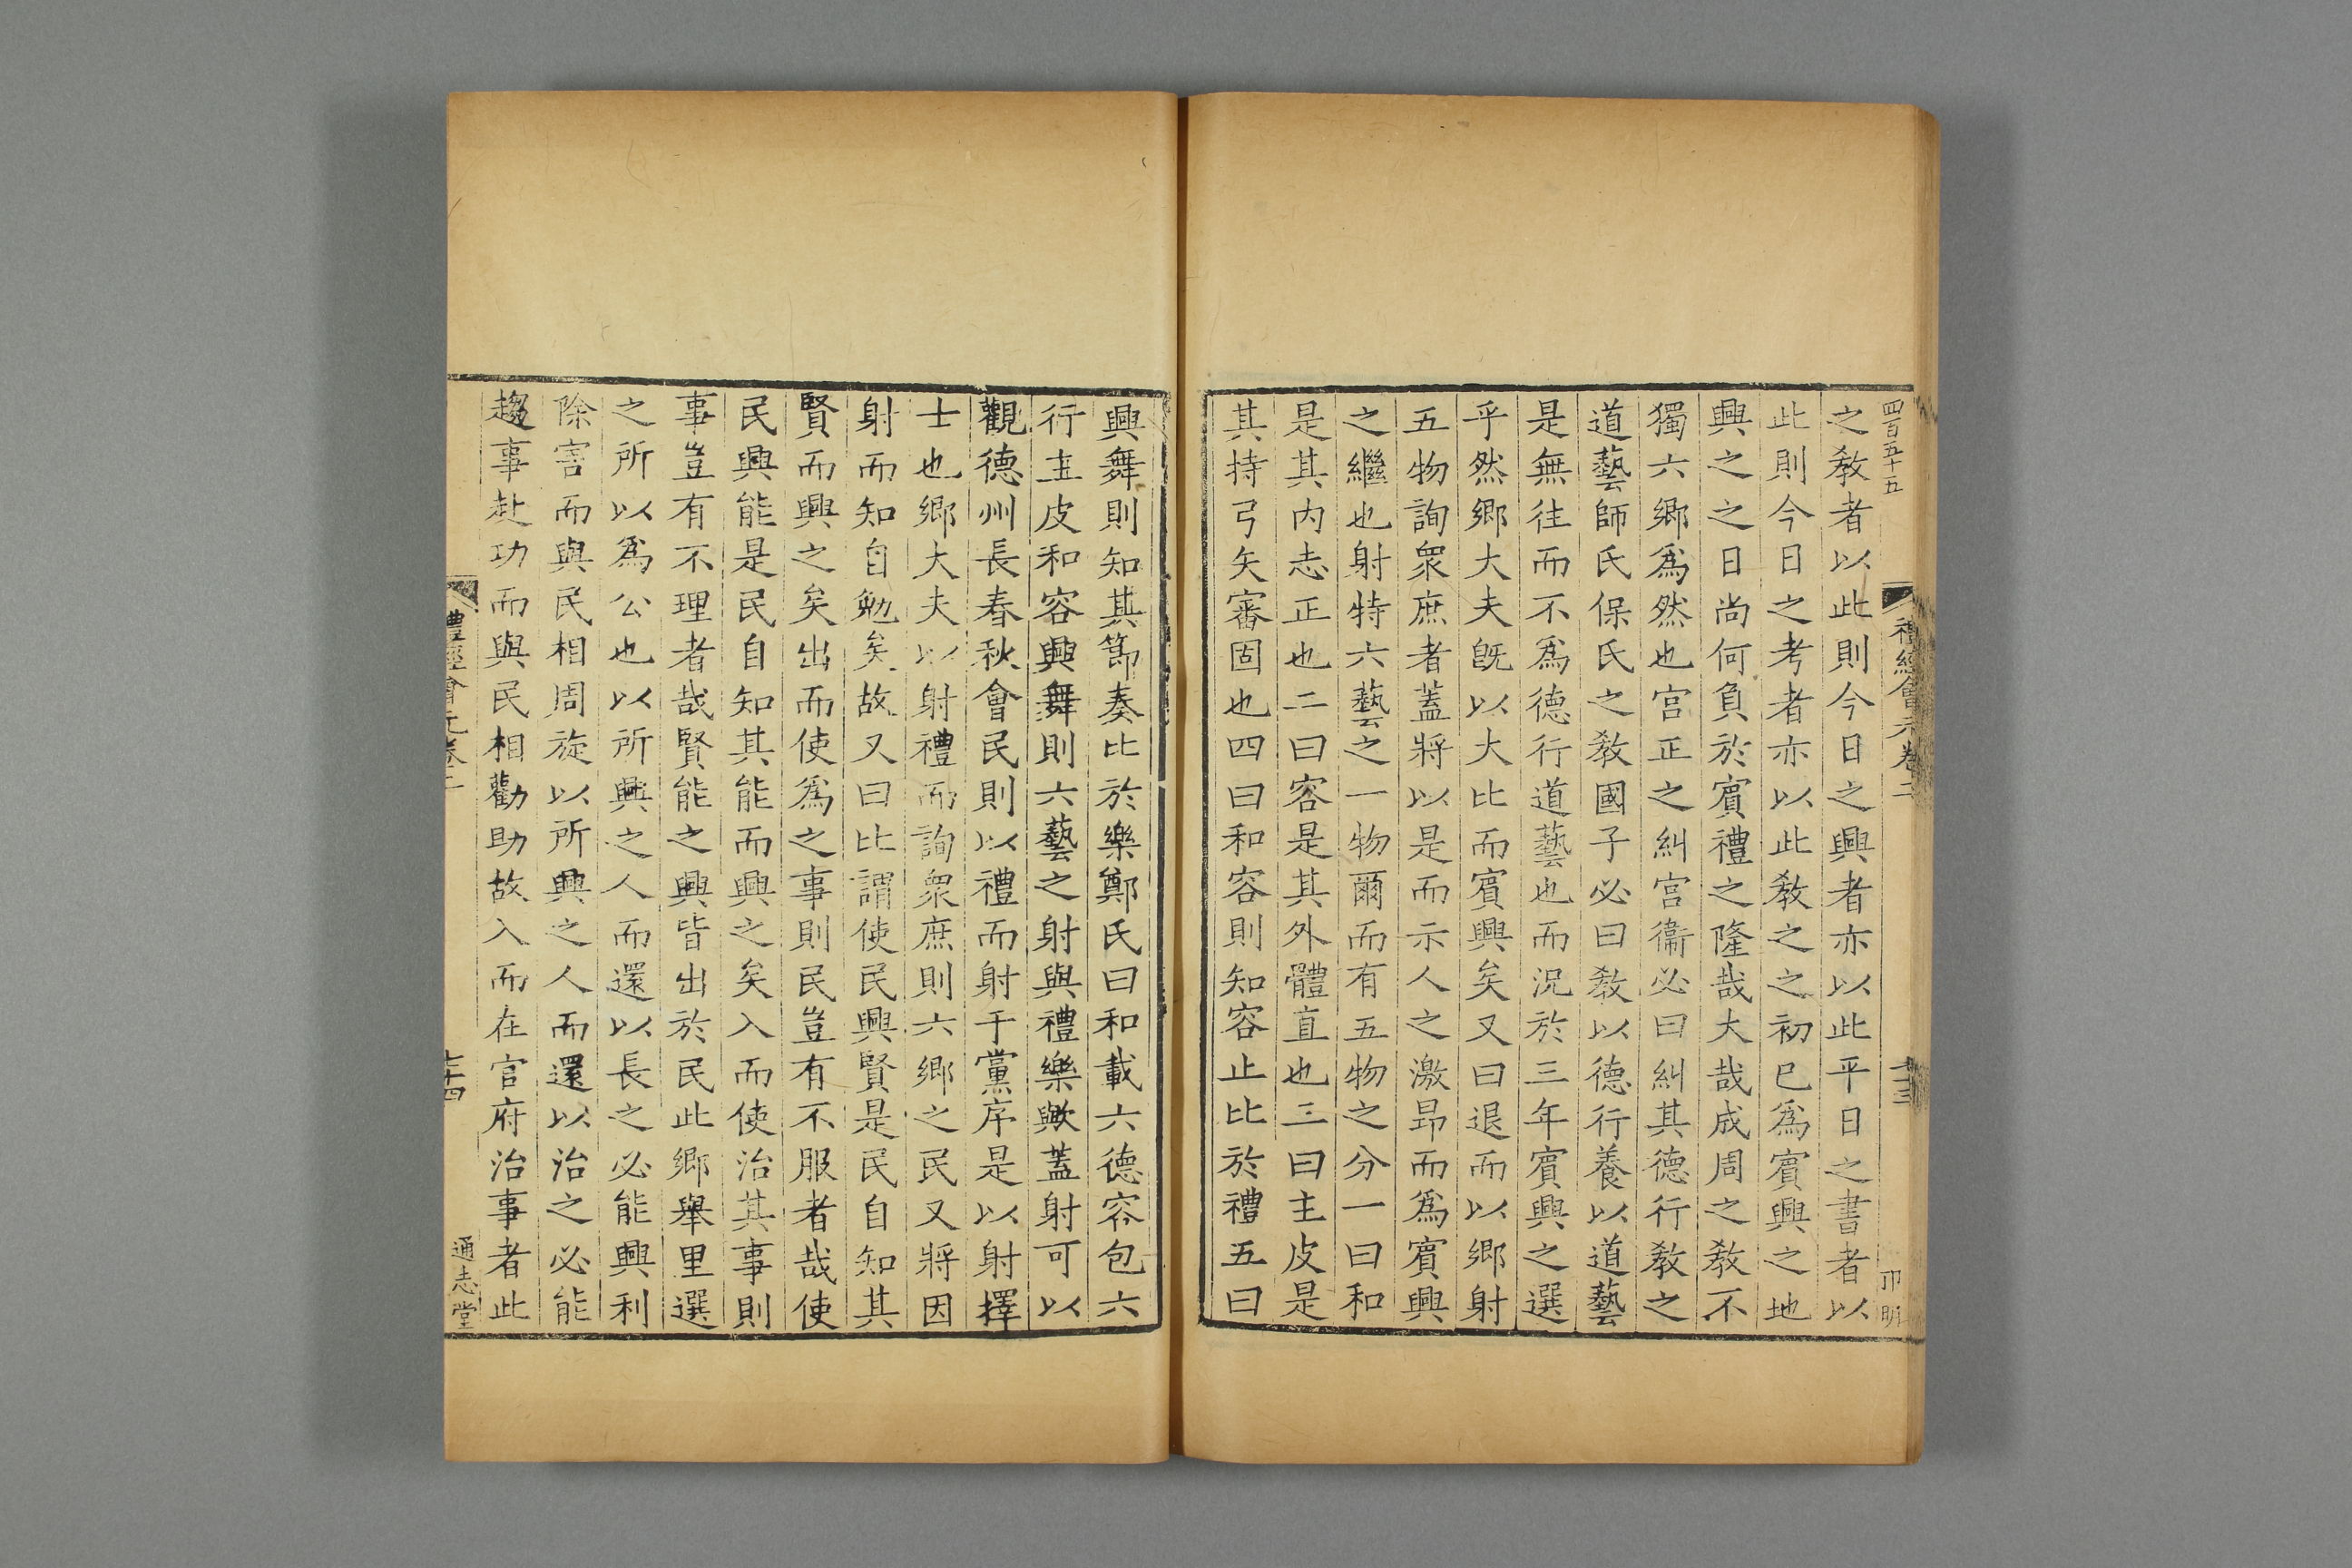 四百五十五
禮經會元卷二
之敎者以此則今日之興者亦以此平日之書者以
此則今日之考者亦以此敎之之初巳爲賓興之地
興之之日尚何負於賓禮之隆哉大哉成周之敎不
獨六鄉爲然也宮正之糾宮衞必曰糾其德行敎之
道藝師氏保氏之敎國子必曰敎以德行養以道藝
是無往而不爲德行道藝也而況於三年賓興之選
乎然鄉大夫旣以大比而賓興矣又曰退而以鄉射
五物詢衆庶者蓋將以是而示人之激昻而爲賓興
之繼也射特六藝之一物爾而有五物之分一曰和
是其内志正也二曰容是其外體直也三曰主皮是
其持弓矢審固也四曰和容則知容止比於禮五曰
興舞則知其節奏比於樂鄭氏曰和載六德容包六
行主皮和容興舞則六藝之射與禮樂歟蓋射可以
觀德州長春秋會民則以禮而射于黨序是以射擇
士也鄉大夫以射禮而詢衆庶則六鄉之民又將因
射而知自勉矣故又曰比謂使民興賢是民自知其
賢而興之矣出而使爲之事則民豈有不服者哉使
民興能是民自知其能而興之矣入而使治其事則
事豈有不理者哉賢能之興皆出於民此鄉舉里選
之所以爲公也以所興之人而還以長之必能興利
除害而與民相周旋以所興之人而還以治之必能
趨事赴功而與民相勸助故入而在官府治事者此
禮經會元卷二
七十四
通志堂